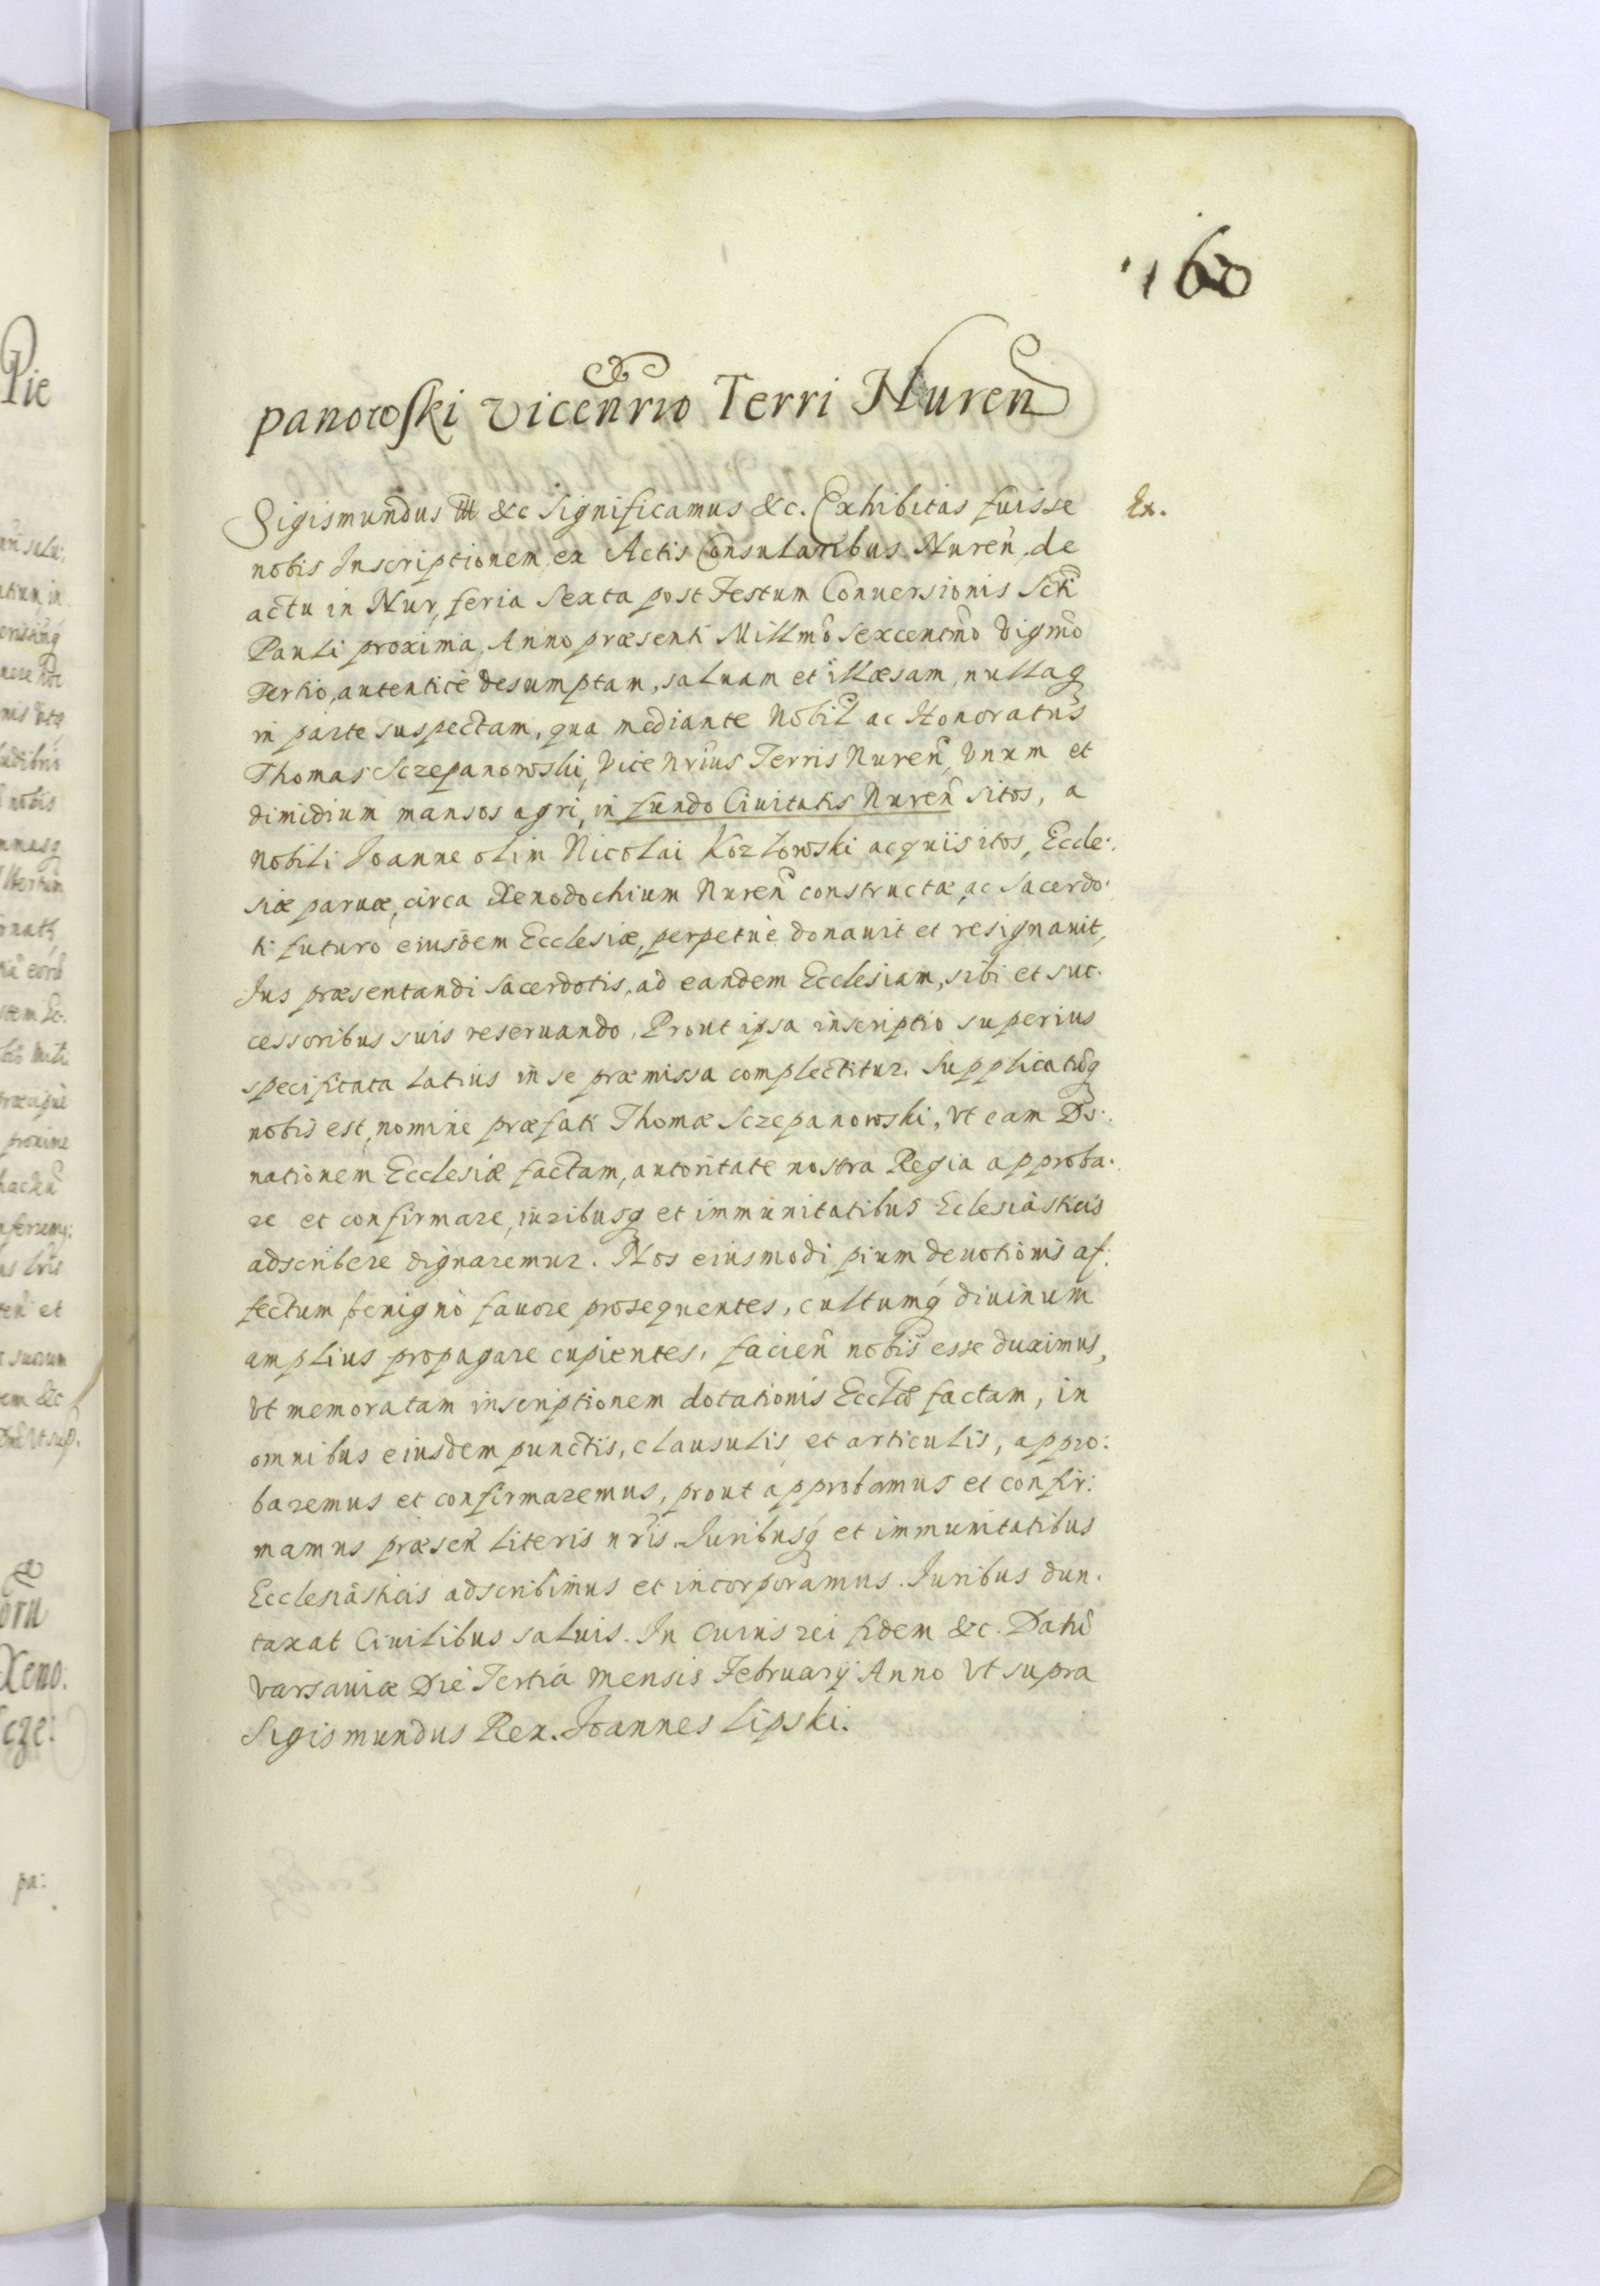 160
panowski Vicenrio Terri Nuren
Sigismundus III &c Significamus &c. Exhibitas fuisse
Ex.
nobis Inscriptionem, ex Actis Consularibus Nuren, de
actu in Nur, feria sexta post Festum Conuersionis Scti
Pauli proxima, Anno præsenti Millmo Sexcentmo Vigmo
Tertio, autentice desumptam, saluam et illæsam, nullaq
in parte suspectam, qua mediante Nobil ac Honoratus
Thomas Sczepanowski, Vice Nrius Terris Nuren, Vnum et
dimidium mansos agri, in fundo Ciuitatis Nuren sitos, a
Nobili Joanne olim Nicolai Kozłowski acquisitos, Eccle:
siæ paruæ, circa Xenodochium Nuren constructæ, ac Sacerdo:
ti futuro eiusdem Ecclesiæ, perpetuè donauit et resignauit,
Jus præsentandi Sacerdotis, ad eandem Ecclesiam, sibi et suc:
cessoribus suis reseruando, Prout ipsa inscriptio superius
specificata latius in se præmissa complectitur. Supplicatuq
nobis est, nomine præfati Thomæ Sczepanowski, Vt eam Do:
nationem Ecclesiæ factam, autoritate nostra Regia approba:
re et confirmare, iuribusq et immunitatibus Eclesiasticis
adscribere dignaremur. Nos eiusmodi pium deuotionis af:
fectum benigno fauore prosequentes, cultumq diuinum
amplius propagare cupientes, facien nobis esse duximus,
Vt memoratam inscriptionem dotationis Eccliæ factam, in
omnibus eiusdem punctis, clausulis et articulis, appro:
baremus et confirmaremus, prout approbamus et confir:
mamus præsen literis nris. Juribusq et immunitatibus
Ecclesiasticis adscribimus et incorporamus. Juribus dun:
taxat Ciuilibus saluis. In cuius rei fidem &c. Datu
Varsauiæ Die Tertia Mensis February Anno Vt supra
Sigismundus Rex. Joannes Lipski.